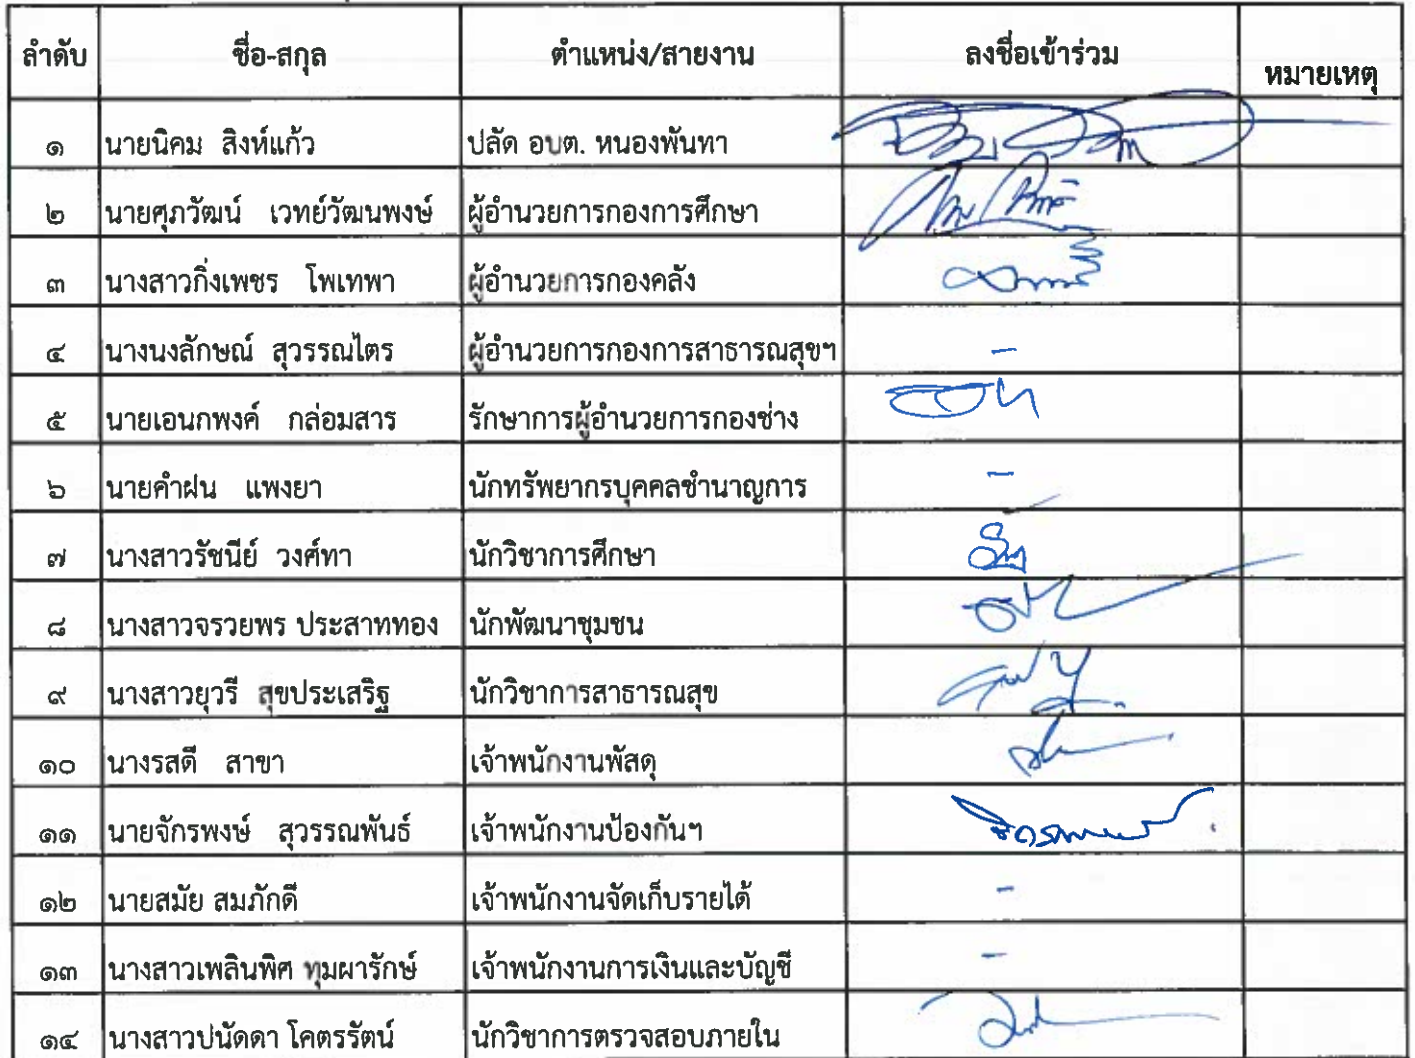 ลำดับ ชื่อ-สกุล ตำแหน่ง/สายงาน ลงชื่อเข้าร่วม หมายเหตุ
๑ นายนิคม สิงห์แก้ว ปลัด อบต. หนองพันทา
๒ นายศุภวัฒน์ เวทย์วัฒนพงษ์ ผู้อำนวยการกองการศึกษา
๓ นางสาวกิ่งเพชร โพเทพา ผู้อำนวยการกองคลัง
๔ นางนงลักษณ์ สุวรรณไตร ผู้อำนวยการกองการสาธารณสุขฯ -
๕ นายเอนกพงค์ กล่อมสาร รักษาการผู้อำนวยการกองช่าง
๖ นายคำฝน แพงยา นักทรัพยากรบุคคลชำนาญการ -
๗ นางสาวรัชนีย์ วงศ์ทา นักวิชาการศึกษา
๘ นางสาวจรวยพร ประสาททอง นักพัฒนาชุมชน
๙ นางสาวยุวรี สุขประเสริฐ นักวิชาการสาธารณสุข
๑๐ นางรสดี สาขา เจ้าพนักงานพัสดุ
๑๑ นายจักรพงษ์ สุวรรณพันธ์ เจ้าพนักงานป้องกันฯ
๑๒ นายสมัย สมภักดี เจ้าพนักงานจัดเก็บรายได้ -
๑๓ นางสาวเพลินพิศ ทุมผารักษ์ เจ้าพนักงานการเงินและบัญชี -
๑๔ นางสาวปนัดดา โคตรรัตน์ นักวิชาการตรวจสอบภายใน